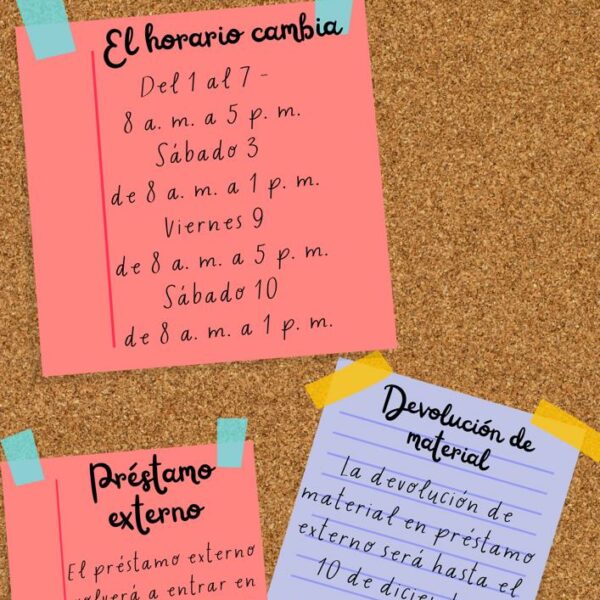 El horario cambia
Del 1 al 7 -
8 a. m. a 5 p. m.
Sábado 3
de 8 a. m. a 1 p. m.
Viernes 9
de 8 a. m. a 5 p. m.
Sábado 10
de 8 a. m. a 1 p. m.
Préstamo
externo
El préstamo externo
a entrar en
Devolución de
material
La devolución de
material en préstamo
externo será hasta el
10 de